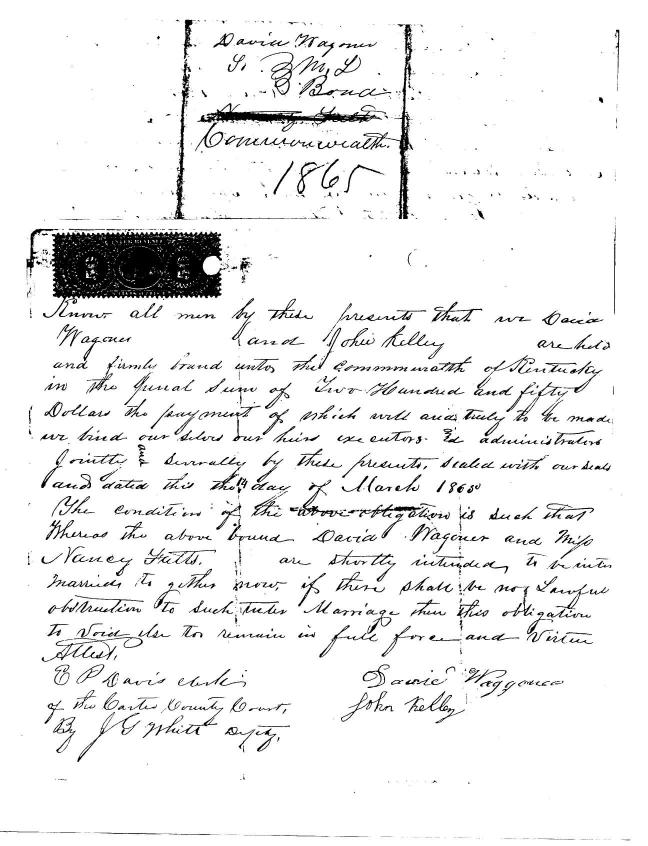 David Wagoner
To M. L
Bond
Commonwealth.
1865
Know all men by these presents that we David
Wagoner and John Kelley are held
and firmly bound unto the Commonwealth of Kentucky
in the penal Sum of Two Hundred and fifty
Dollars the payment of which well and truly to be made
we bind our selves our heirs executors &d administrators
Jointly and severally by these presents, sealed with our seals
and dated this the 14 day of March 1865
The condition of the above obligation is such that
Whereas the above bound David Wagoner and Miss
Nancy Fults. are shortly intended to be inter
married to gether now if there shall be no Lawful
obstruction to such inter Marriage then this obligation
to void else to remain in full force and Virtue
Attest,
E P Davis clerk
of the Carter County Court,
By J G Whitt Depty.
David Waggoner
John Kelley